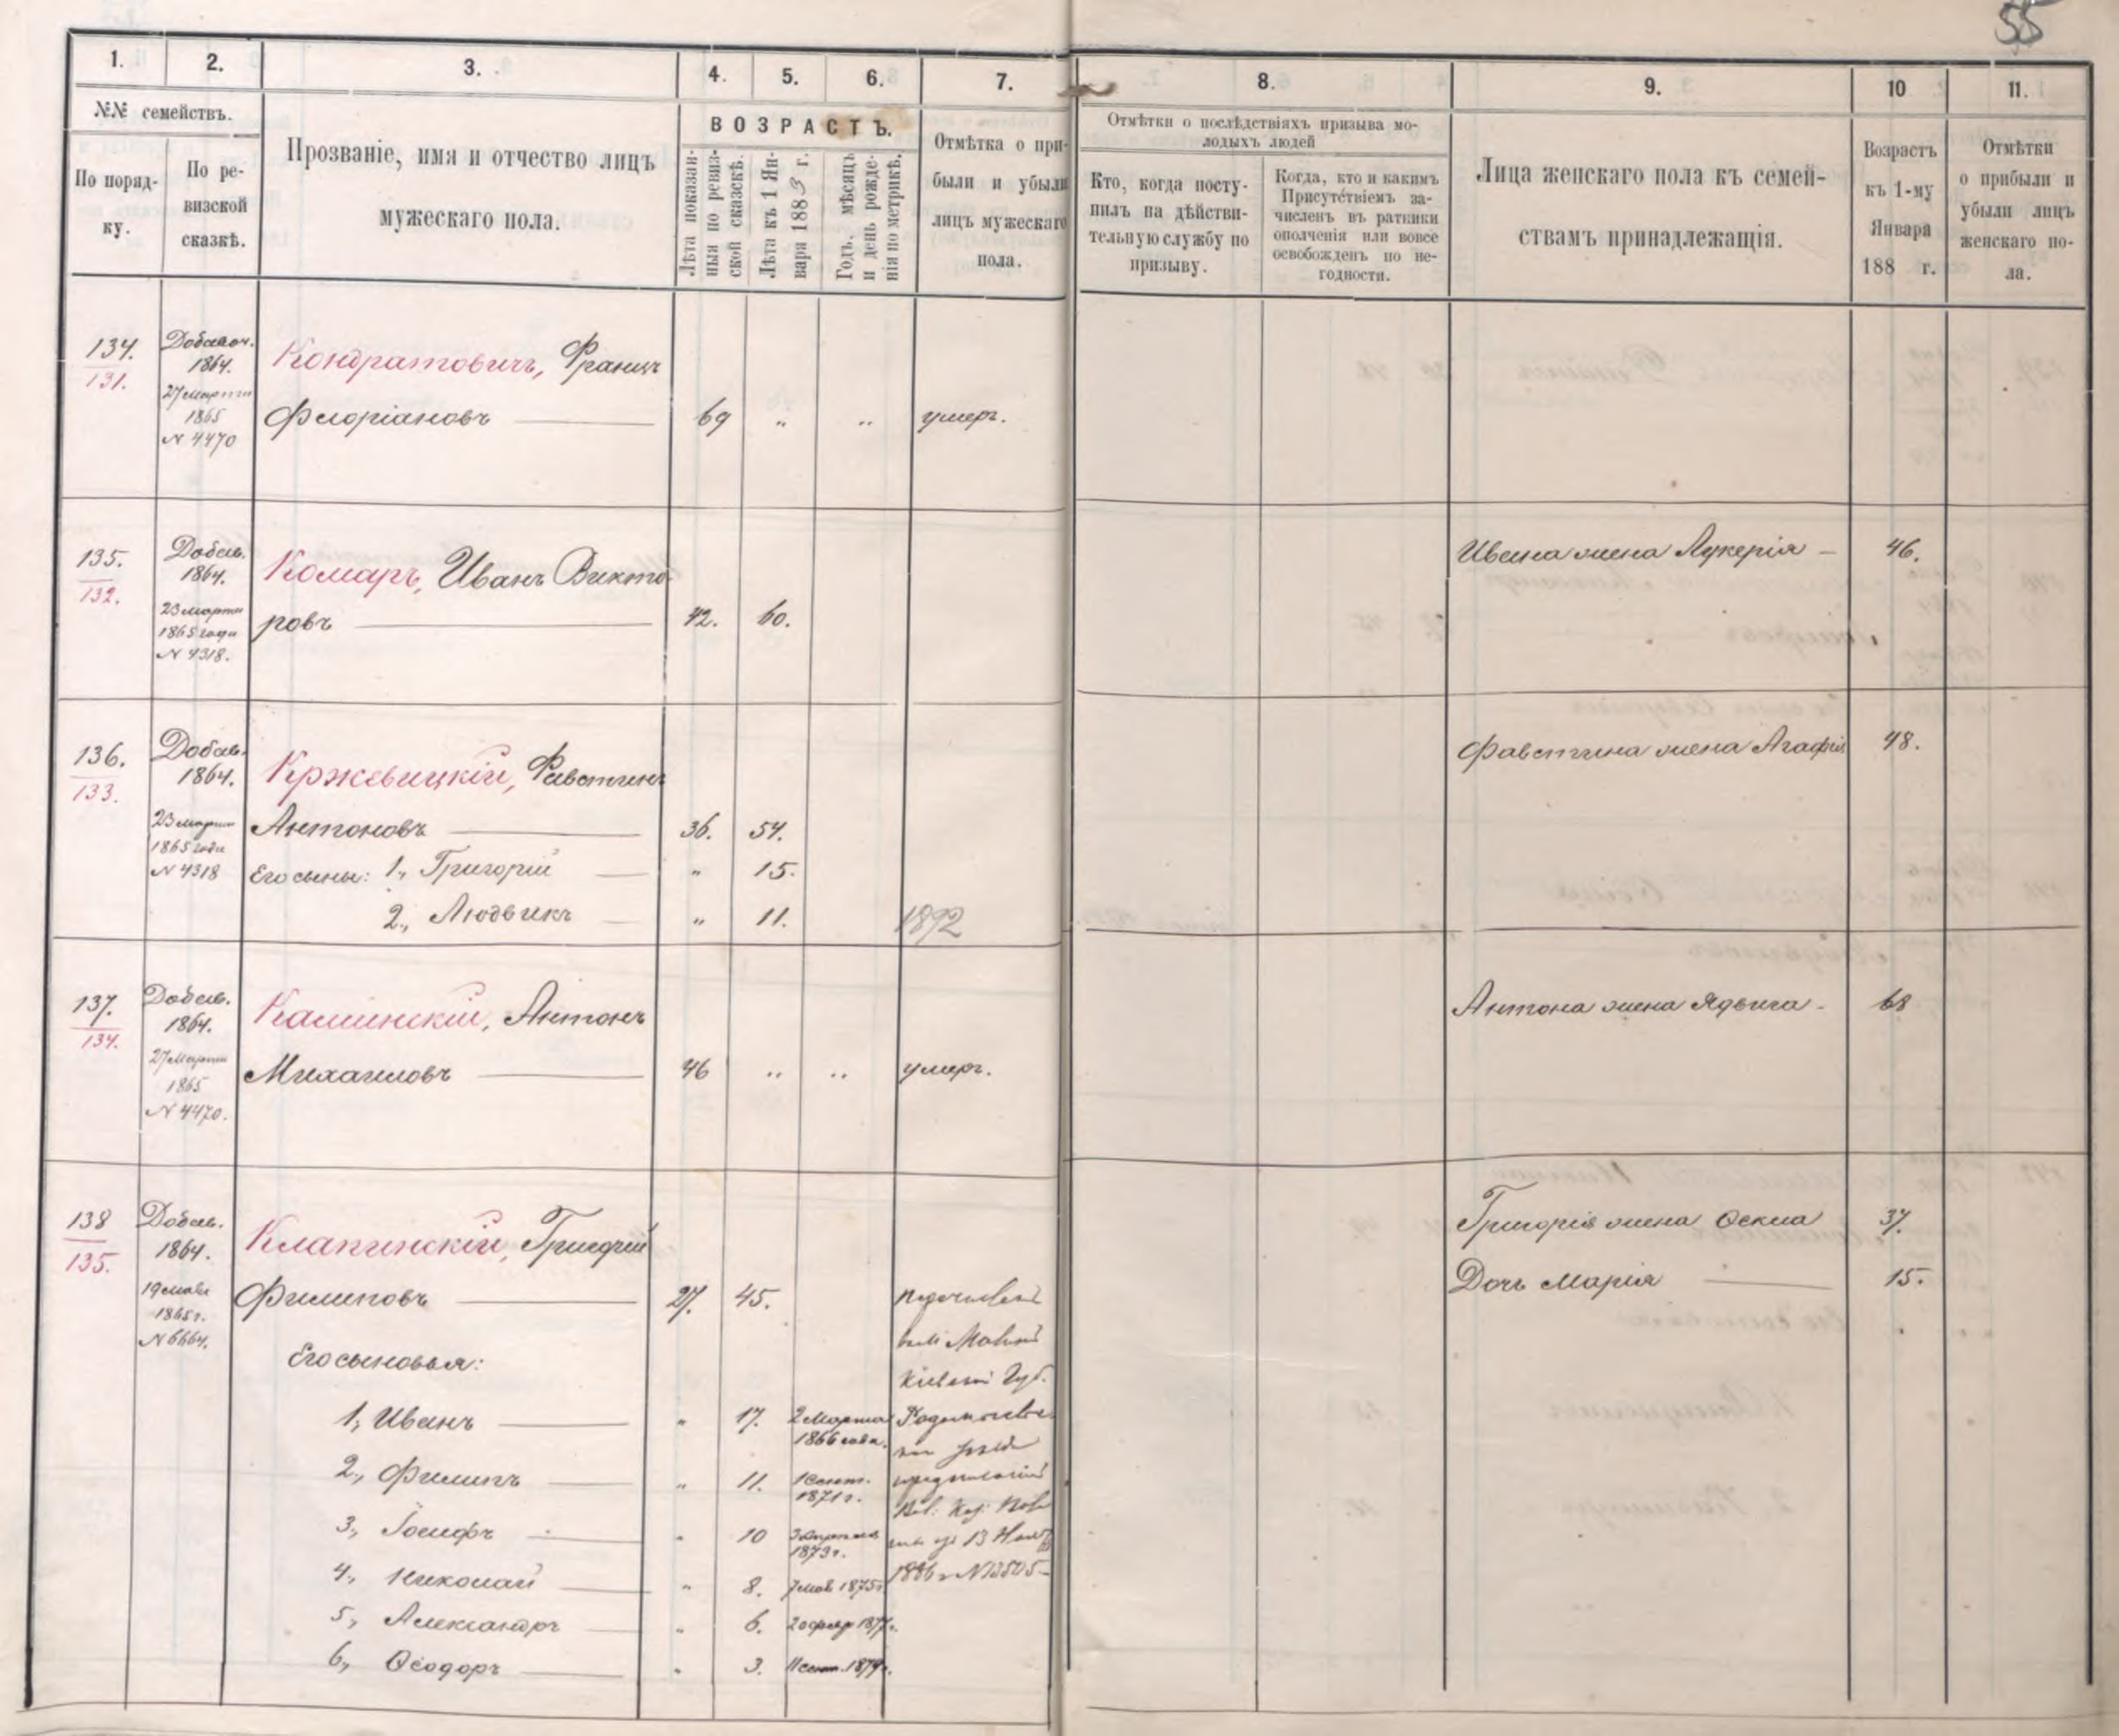 55
1.
2.
3.
4.
5.
6.
7.
8.
9.
10
11.
№№ семействъ.
По поряд-
ку.
По ре-
визской
сказкѣ.
Прозваніе, имя и отчество лицъ
мужескаго пола.
ВОЗРАСТЪ.
Лѣта показан-
ныя по ревиз-
ской сказкѣ.
Лѣта къ 1 Ян-
варя 1883 г.
Годъ, мѣсяцъ
и день рожде-
нія по метрикѣ.
Отмѣтка о при-
были и убыли
лицъ мужескаго
пола.
Отмѣтки о послѣдствіяхъ призыва мо-
лодыхъ людей
Кто, когда посту-
пилъ на дѣйстви-
тельную службу по
призыву.
Когда, кто и какимъ
Присутствіемъ за-
численъ въ ратники
ополченія или вовсе
освобожденъ по не-
годности.
Лица женскаго пола къ семей-
ствамъ принадлежащія.
Возрастъ
къ 1-му
Января
188 г.
Отмѣтки
о прибыли и
убыли лицъ
женскаго по-
ла.
134.
131.
Добавоч.
1864.
27 Марта
1865
N 4470
Кондратовичъ, Францъ
Флоріановъ 69 " " умеръ.
135.
132.
Добав.
1864.
23 марта
1865 года
N 4318.
Комаръ, Иванъ Викто-
ровъ 42. 60.
Ивана жена Лукерія 46.
136.
133.
Добав.
1864.
23 марта
1865 года
N 4318
Кржевицкій, Фавстинъ
Антоновъ 36. 54.
Его сыны: 1., Григорій " 15.
2., Людвикъ " 11. 1892
Фавстина жена Агафія 48.
137.
134.
Добав.
1864.
27 Марта
1865
N 4470.
Каминскій, Антонъ
Михаиловъ 46 " " умеръ.
Антона жена Ядвига 68
138
135.
Добав.
1864.
19 мая
1865 г.
N 6664.
Клапчинскій, Григорій
Филиповъ 27. 45.
Его сыновья:
1., Иванъ " 17. 2 Марта
1866 года.
2., Филипъ " 11. 1 Сент.
1871 г.
3., Іосифъ " 10 3 Апреля
1873 г.
4., Николай " 8. 7 мая 1875 г.
5., Александръ " 6. 20 февр 1877 г.
6., Ѳеодоръ " 3. 11 сент. 1879 г.
Кіевской Губ.
13
1886 г N 13505
Григорія жена Ѳекла 37.
Дочь Марія 15.